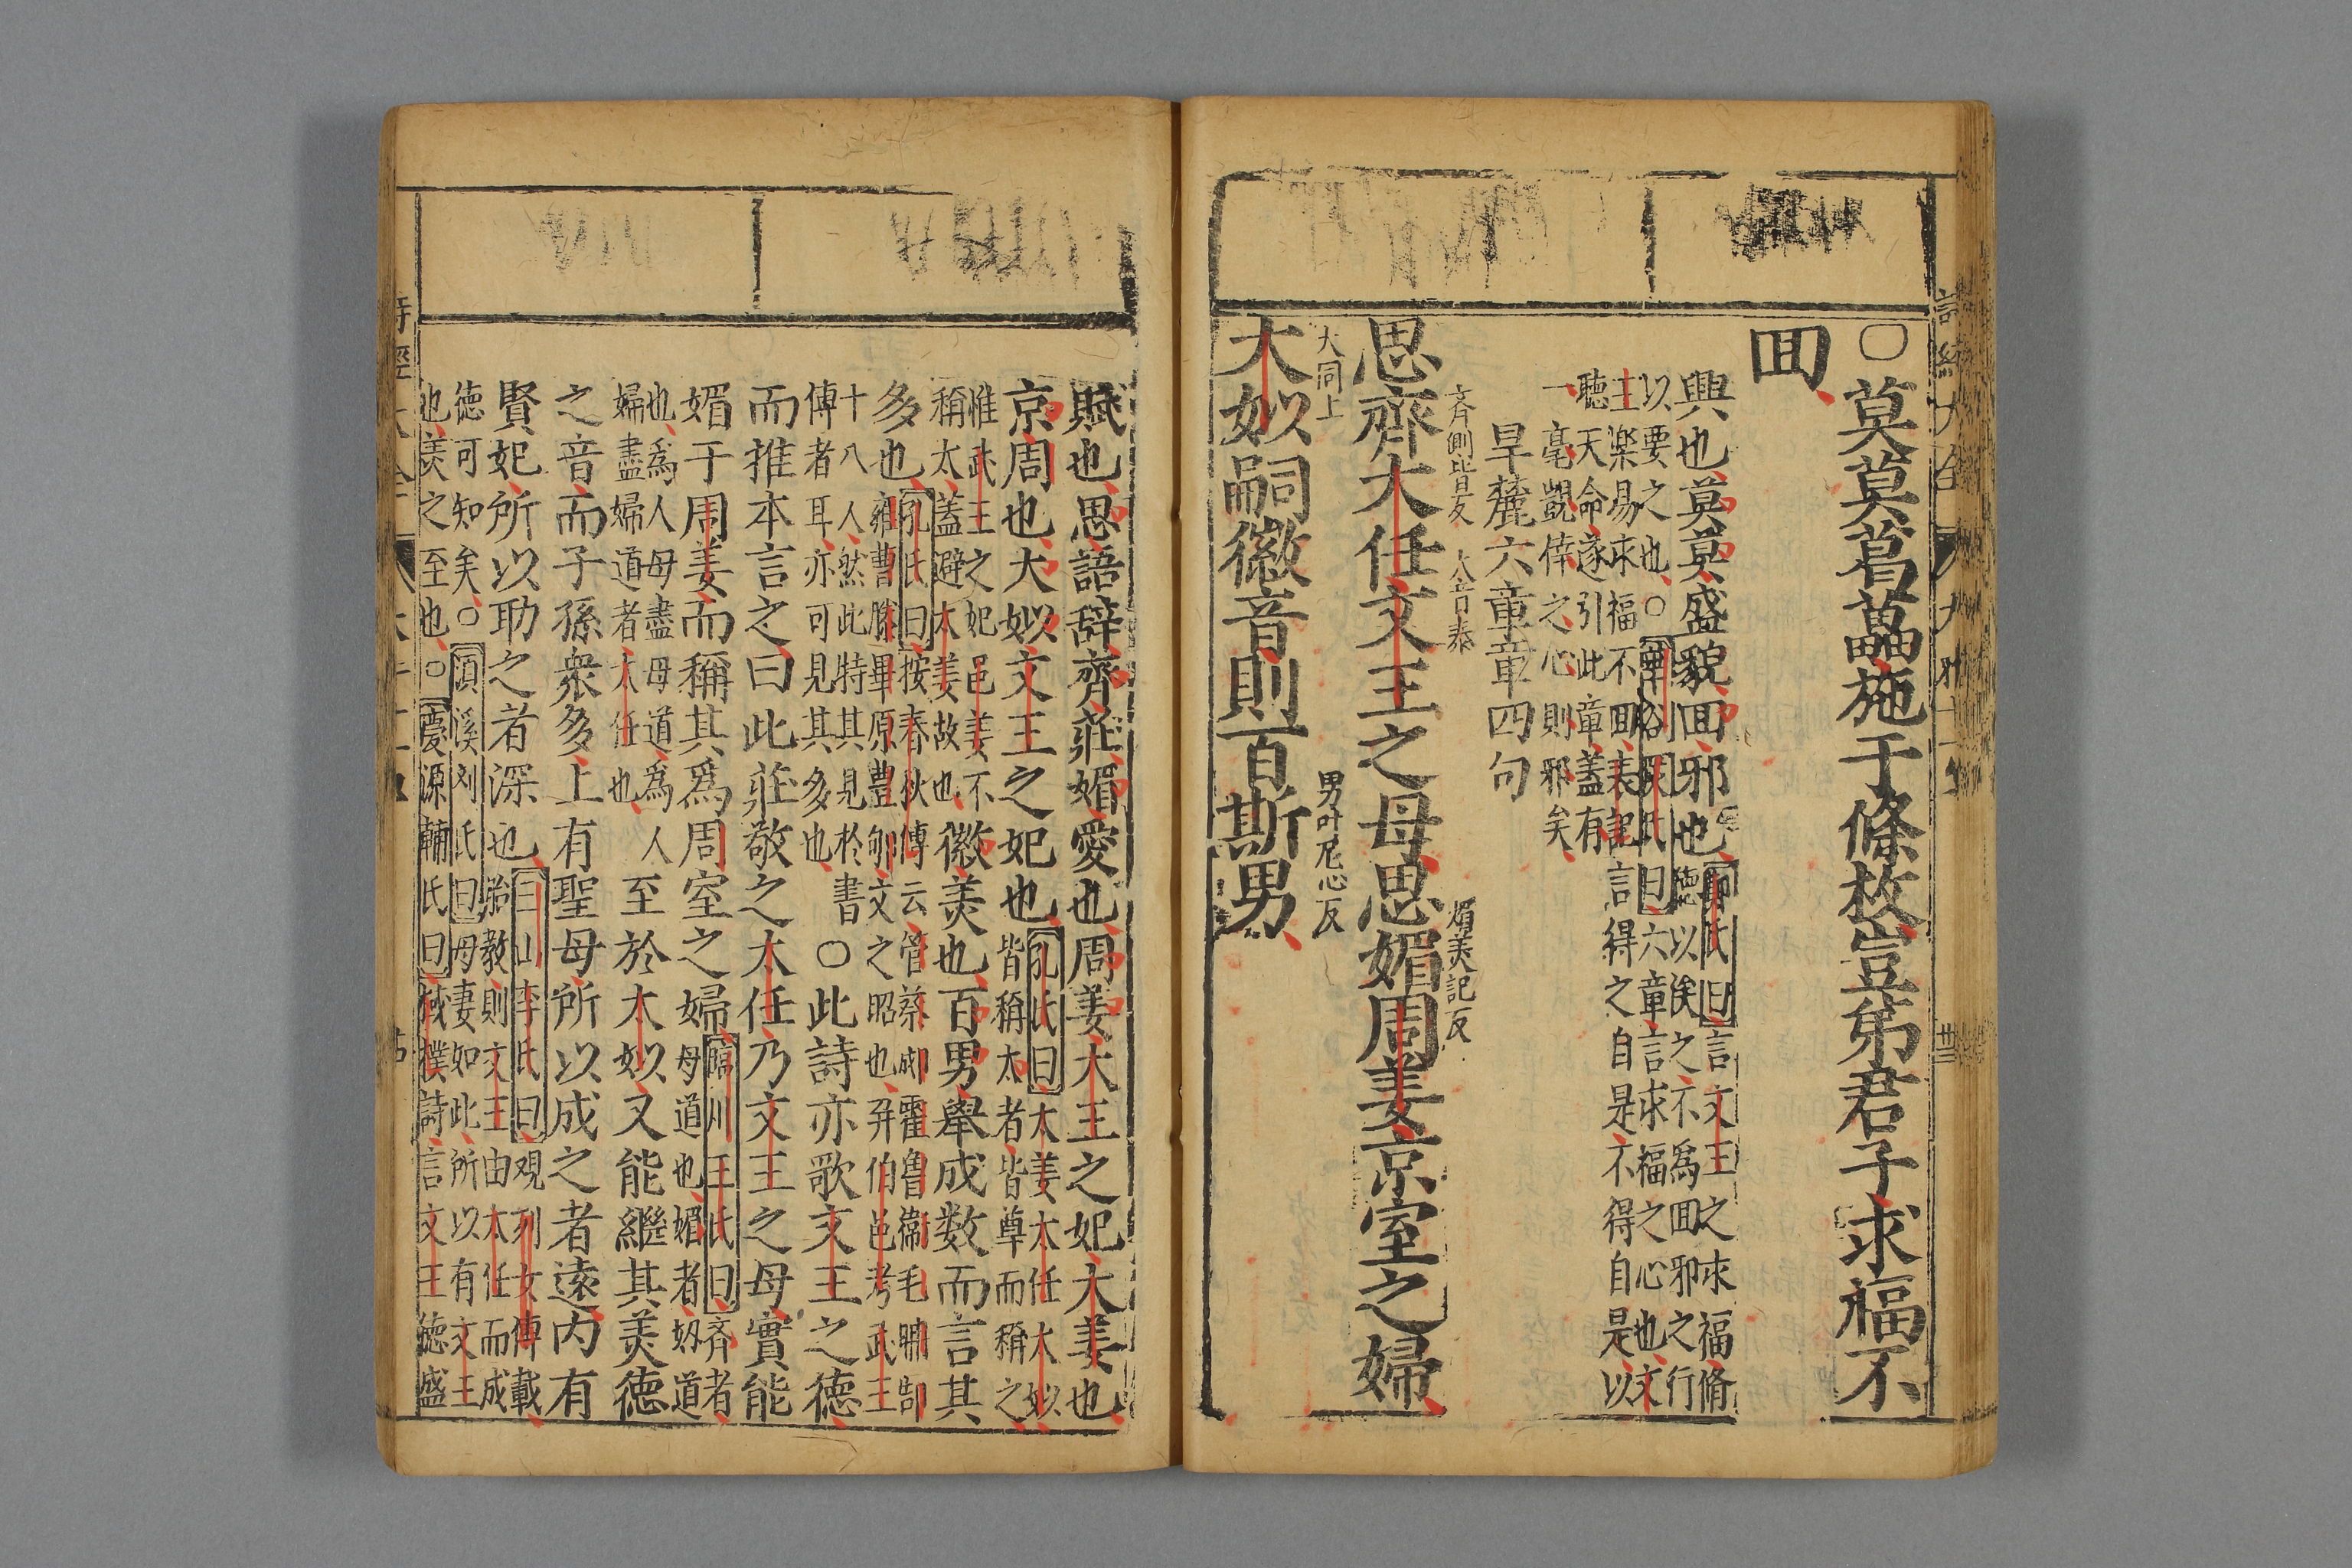 ○莫莫葛藟施于條枚豈弟君子求福不
回
興也莫莫盛貌回邪也鄭氏曰言文王之求福脩
德以俟之不為回邪之行
以要之也○華谷嚴氏曰六章言求福之心也文
王楽易求福不回表記言得之自是不得自是以
聽天命遂引此章蓋有
一毫覬倖之心則邪矣
旱麓六章章四句
齊側皆反 大音泰 媚美記反
思齊大任文王之母思媚周姜京室之婦
大同上 男叶尼心反
大姒嗣徽音則百斯男
賦也思語辞齊莊媚愛也周姜大王之妃大姜也
京周也大姒文王之妃也孔氏曰太姜太任大姒
皆稱太者皆尊而稱之
惟武王之妃邑姜不
稱太蓋避太姜故也徽美也百男舉成数而言其
多也孔氏曰按春秋傳云管蔡郕霍魯衛毛聃郜
雍曹滕畢原豊郇文之昭也并伯邑考武王
十八人然此特其見於書
傳者耳亦可見其多也○此詩亦歌文王之德
而推本言之曰此莊敬之大任乃文王之母實能
媚于周姜而稱其爲周室之婦臨川王氏曰齊者
母道也媚者婦道
也爲人母盡母道爲人
婦盡婦道者大任也至於大姒又能繼其美德
之音而子孫衆多上有聖母所以成之者遠内有
賢妃所以助之者深也三山李氏曰观列女傳載
胎教則文王由太任而成
德可知矣○湏溪刘氏曰母妻如此所以有文王
也羡之至也○慶源輔氏曰棫樸詩言文王德盛